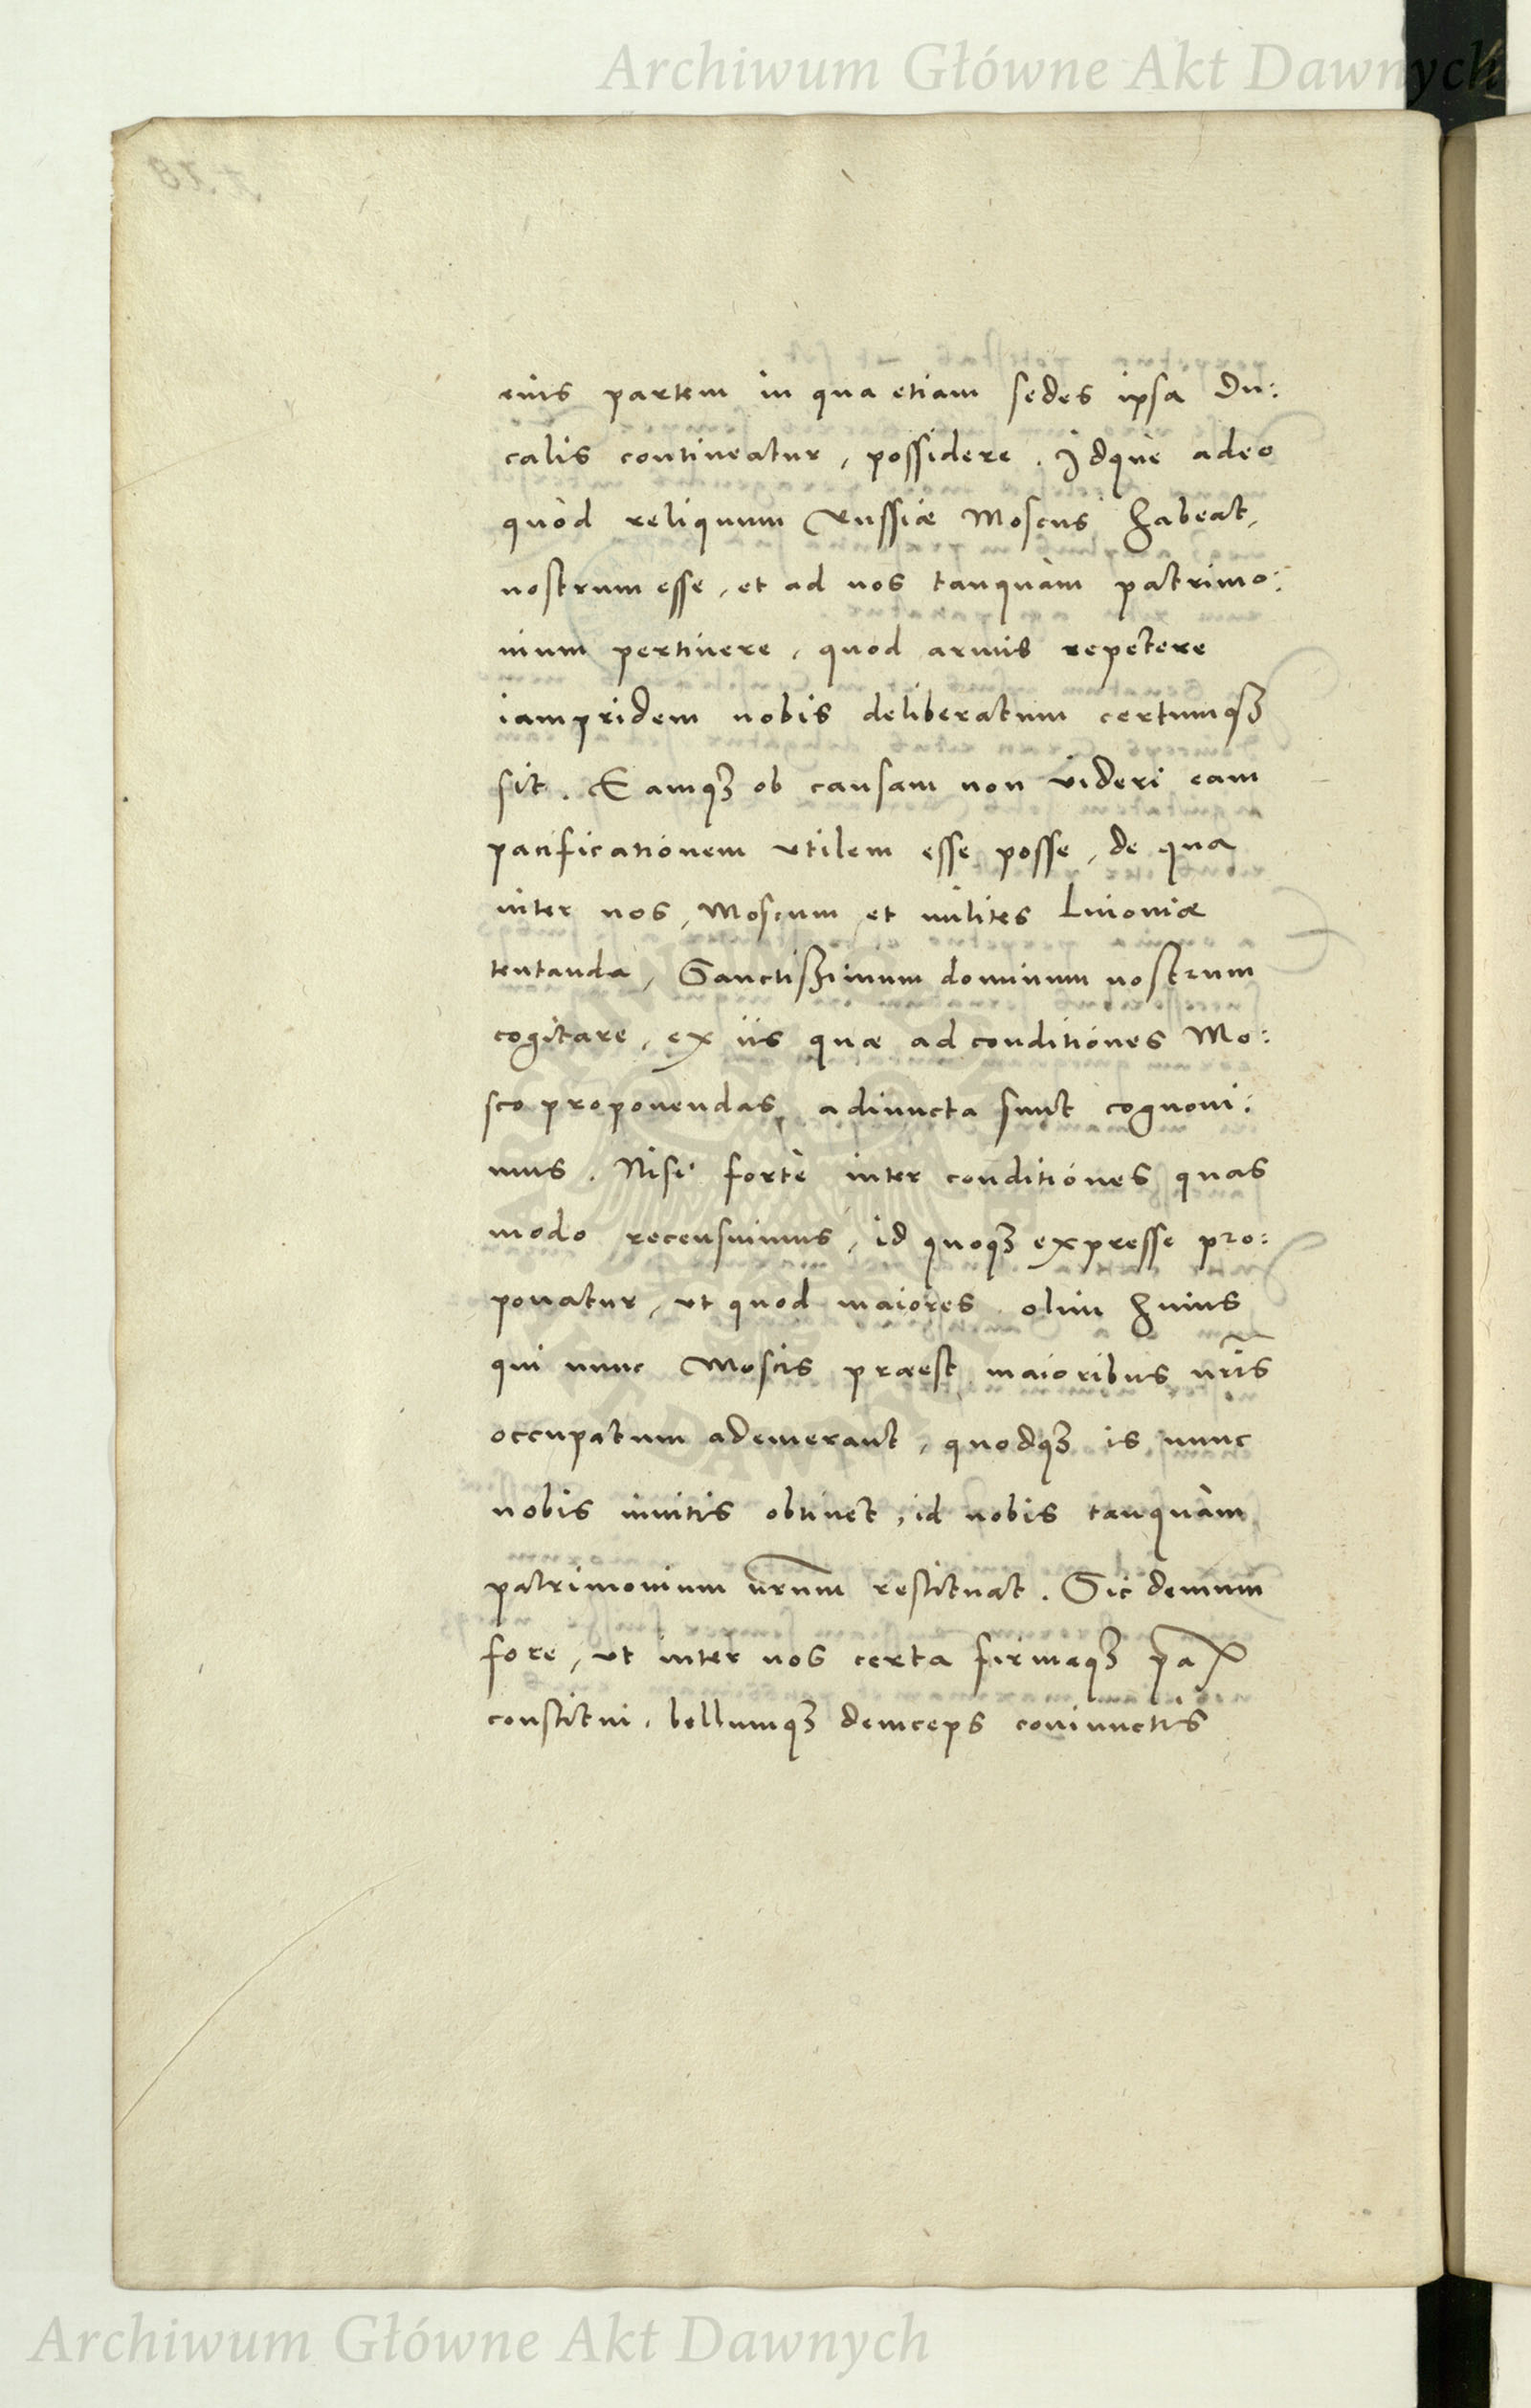 Archiwum Główne Akt Dawnych
eius partem in qua etiam sedes ipsa Du:
calis contineatur, possidere. Idque adeo
quòd reliquum Russiæ Moscus habeat,
nostrum esse, et ad nos tanquàm patrimo:
nium pertinere, quod armis repetere
iampridem nobis deliberatum certumqꝫ
sit. Eamqꝫ ob causam non videri eam
pacificationem vtilem esse posse, de qua
inter nos, Moscum et milites Liuoniæ
tentanda, Sanctißimum dominum nostrum
cogitare, ex iis quæ ad conditiónes Mo:
sco proponendas adiuncta sunt cognoui:
mus. Nisi fortè inter conditiónes quas
modo recensuimus, id quoqꝫ expresse pro:
ponatur, vt quod maiores olim huius
qui nunc Moscis præest maioribus nr̃is
occupatum ademerant, quodqꝫ is nunc
nobis inuitis obtinet, id nobis tanquàm
patrimonium nr̃um restituat. Sic demum
fore, vt inter nos certa firmaqꝫ pax
constitui, bellumqꝫ deinceps coniunctis
Archiwum Główne Akt Dawnych